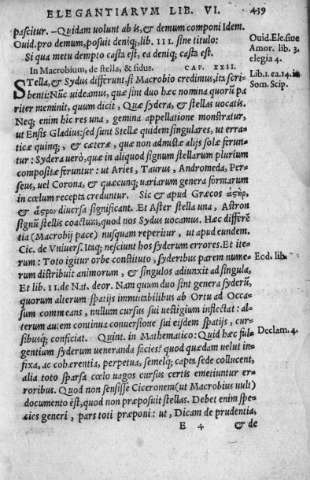 ELEGANTIARVM LIB. VI. 439
pascitur. —Quidam uolunt ab is, & demum componi Idem.
Ouid. pro demum, posuit deniq; lib. III. sine titulo:
Si qua metu dempto casta est, ea deniq; casta est.
Ouid. Ele. sine
Amor. lib. 3.
elegia 4.
In Macrobium, de stella, & sidus. CAP. XXII.
STella, & Sydus differunt, si Macrobio credimus, ita scri-
benti: Nūc uideamus, quæ sint duo hæc nomina quorū pa
riter meminit, quum dicit, Quæ sydera, & stellas uocatis.
Neq; enim hic res una, gemina appellatione monstratur,
ut Ensis Gladius: sed sunt Stellæ quidem singulares, ut erra-
ticæ quinq;, & cæteræ, quæ non admistæ alijs solæ ferun-
tur: Sydera uerò, quæ in aliquod signum stellarum plurium
compositæ feruntur: ut Aries, Taurus, Andromeda, Per-
seus, uel Corona, & quæcunq; uariarum genera formarum
in cœlum recepta creduntur. Sic & apud Græcos ἀστὴρ,
& ἄστρον diuersa significant. Et Aster stella una, Astron
signū stellis coactum, quod nos Sydus uocamus. Hæc differē
tia (Macrobij pace) nusquam reperitur, ut apud eundem.
Cic. de Vniuers. Itaq; nesciunt hos syderum errores. Et ite-
rum: Toto igitur orbe constituto, syderibus parem nume-
rum distribuit animorum, & singulos adiunxit ad singula,
Et lib. II. de Nat. deor. Nam quum duo sint genera syderū,
quorum alterum spatijs immutabilibus ab Ortu ad Occa-
sum commeans, nullum cursus sui uestigium inflectat: al-
terum autem continua conuersione sui eisdem spatijs, cur-
sibusq; conficiat. Quint. in Mathematico: Quid hæc ful-
gentium syderum ueneranda facies? quod quædam uelut in-
fixa, ac cohærentia, perpetua, semelq; capta sede collucent,
alia toto sparsa cœlo uagos cursus certis emetiuntur er-
roribus. Quod non sensisse Ciceronem (ut Macrobius uult)
documento est, quod non præposuit stellas. Debet enim spe-
cies generi, pars toti præponi: ut, Dicam de prudentia,
Lib. 1. ca. 14. in
Som. Scip.
Ecd. lib.
Declam. 4.
E 4 & de